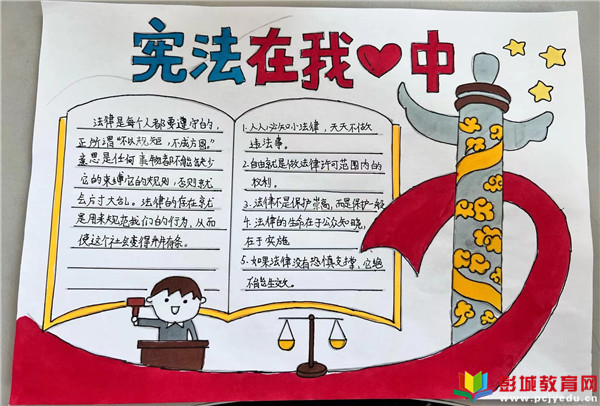 宪法在我❤中
法律是每个人都要遵守的，
正所谓“不以规矩，不成方圆。”
意思是任何事物都不能缺少
它的束缚它的规则，否则就
会片寸大乱。法律的存在就
是用来规范我们的行为，从而
使这个社会变得井井有条。
1.人人必知小法律，天天不做
违法事。
2.自由就是做法律许可范围内的
权利。
3.法律不是保护崇高，而是保护一般
4.法律的生命在于公众知晓，
在于实施
5.如果法律没有恐惧支撑，它绝
不能生效
彭城教育网
www.pcjyedu.cn